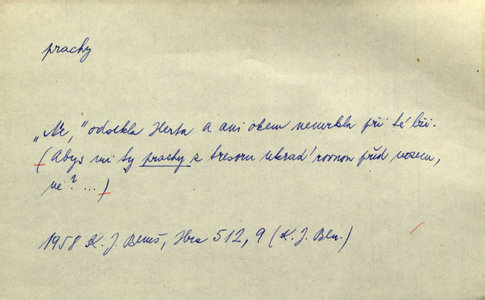 prachy
„Ne,” odsekla Herta a ani okem nemrkla při té lži.
(Abys mi ty prachy z tresoru ukrad' rovnou před nosem,
ne? ...)
1958 K. J. Beneš, Hra 512, 9 (K. J. Ben.)